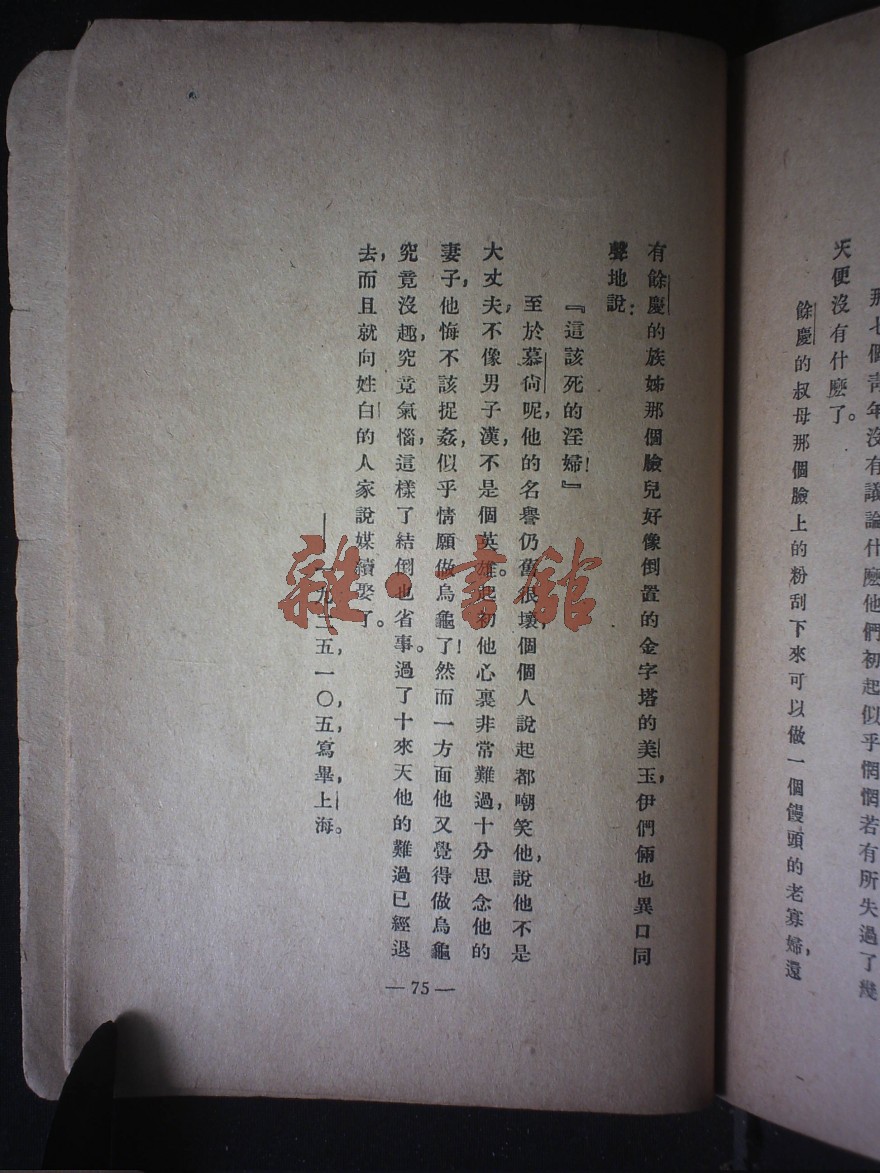 那七個青年沒有議論什麼他們初起似乎惘惘若有所失過了幾
天便沒有什麼了。
餘慶的叔母那個臉上的粉刮下來可以做一個饅頭的老寡婦，還
有餘慶的族姊那個臉兒好像倒置的金字塔的美玉，伊們倆也異口同
聲地說：
『這該死的淫婦！』
至於慕尙呢，他的名譽仍舊很壞，個個人說起都嘲笑他，說他不是
大丈夫，不像男子漢，不是個英雄。起初他心裏非常難過，十分思念他的
妻子，他悔不該捉姦，似乎情願做烏龜了！然而一方面他又覺得做烏龜
究竟沒趣，究竟氣惱，這樣了結倒也省事。過了十來天他的難過已經退
去，而且就向姓白的人家說媒續娶了。
——一九二五，一〇，五，寫畢，上海。
—75—
雜·書館